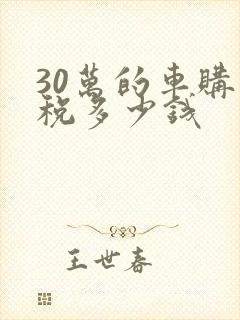 30萬的車購
稅多少錢
王世春